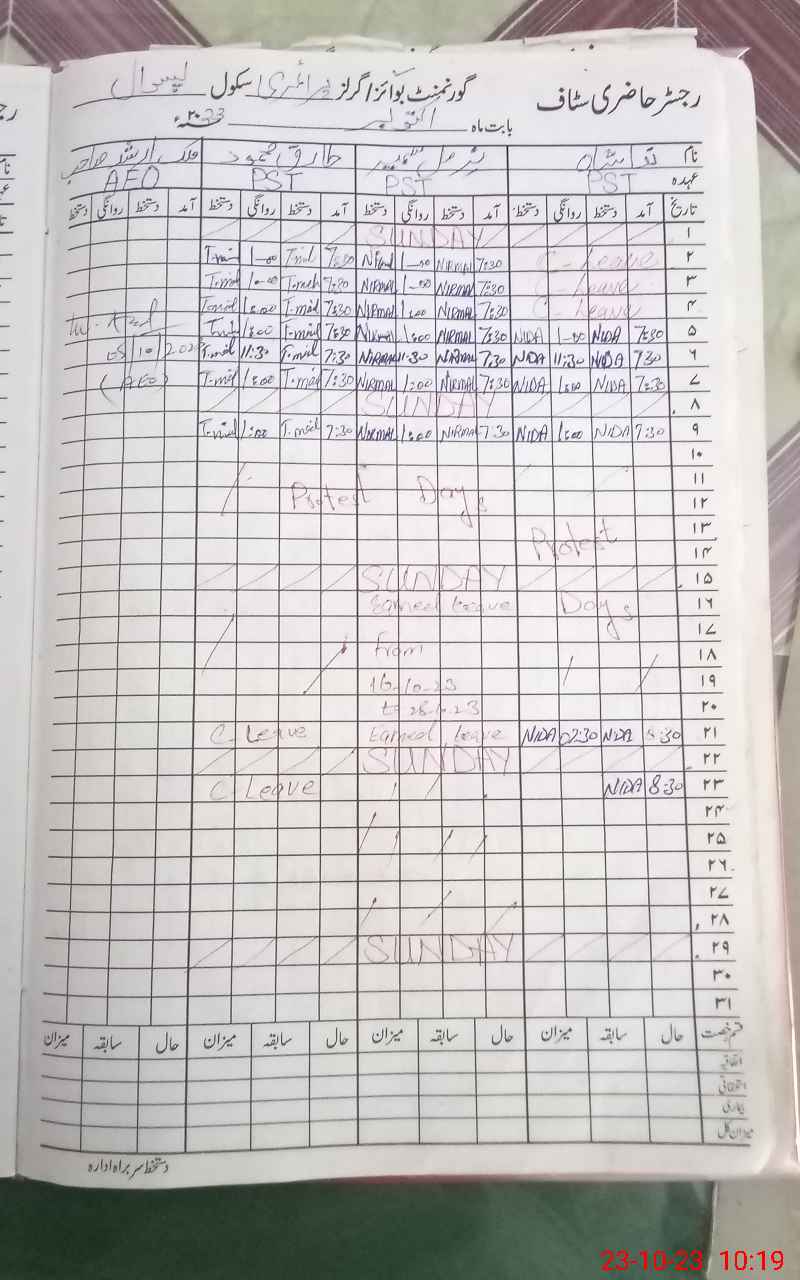 رجسٹر حاضری سٹاف گورنمنٹ بوائز/گرلز پرائمری سکول
بابت ماہ اکتوبر ۲۰23ء
نام طارق محمود ملک ارشد صاحب
عہدہ PST PST PST AEO
تاریخ آمد دستخط روانگی دستخط آمد دستخط روانگی دستخط آمد دستخط روانگی دستخط آمد دستخط روانگی دستخط
۱ SUNDAY
۲ C-Leave 7:30 NIRMAL 1-00 Nirmal 7:30 T.mid 1-00 T.mid
۳ C-Leave 7:30 NIRMAL 1-00 NIRMAL 7:30 T.mid 1-00 T.mid
۴ C-Leave 7:30 NIRMAL 1:00 NIRMAL 7:30 T.mid 1:00 T.mid
۵ 7:30 NIDA 1-00 NIDA 7:30 NIRMAL 1:00 NIRMAL 7:30 T.mid 1:00 T.mid
۶ 7:30 NIDA 11:30 NIDA 7:30 NIRMAL 11:30 NIRMAL 7:30 T.mid 11:30 T.mid 05/10/2023
۷ 7:30 NIDA 1:00 NIDA 7:30 NIRMAL 1:00 NIRMAL 7:30 T.mid 1:00 T.mid (AEO)
۸ SUNDAY
۹ 7:30 NIDA 1:00 NIDA 7:30 NIRMAL 1:00 NIRMAL 7:30 T.mid 1:00 T.mid
۱۰
۱۱
۱۲ Protest Days
۱۳
۱۴ Protest
۱۵ SUNDAY
۱۶ Days Earned leave
۱۷
۱۸ From
۱۹ 16-10-23
۲۰ to 28-10-23
۲۱ 8:30 NIDA 02:30 NIDA Earned leave C-Leave
۲۲ SUNDAY
۲۳ 8:30 NIDA C-Leave
۲۴
۲۵
۲۶
۲۷
۲۸
۲۹ SUNDAY
۳۰
۳۱
قسم رخصت حال سابقہ میزان حال سابقہ میزان حال سابقہ میزان حال سابقہ میزان
اتفاقیہ
استحقاقی
بیماری
میزان کل
دستخط سربراہ ادارہ
23-10-23 10:19